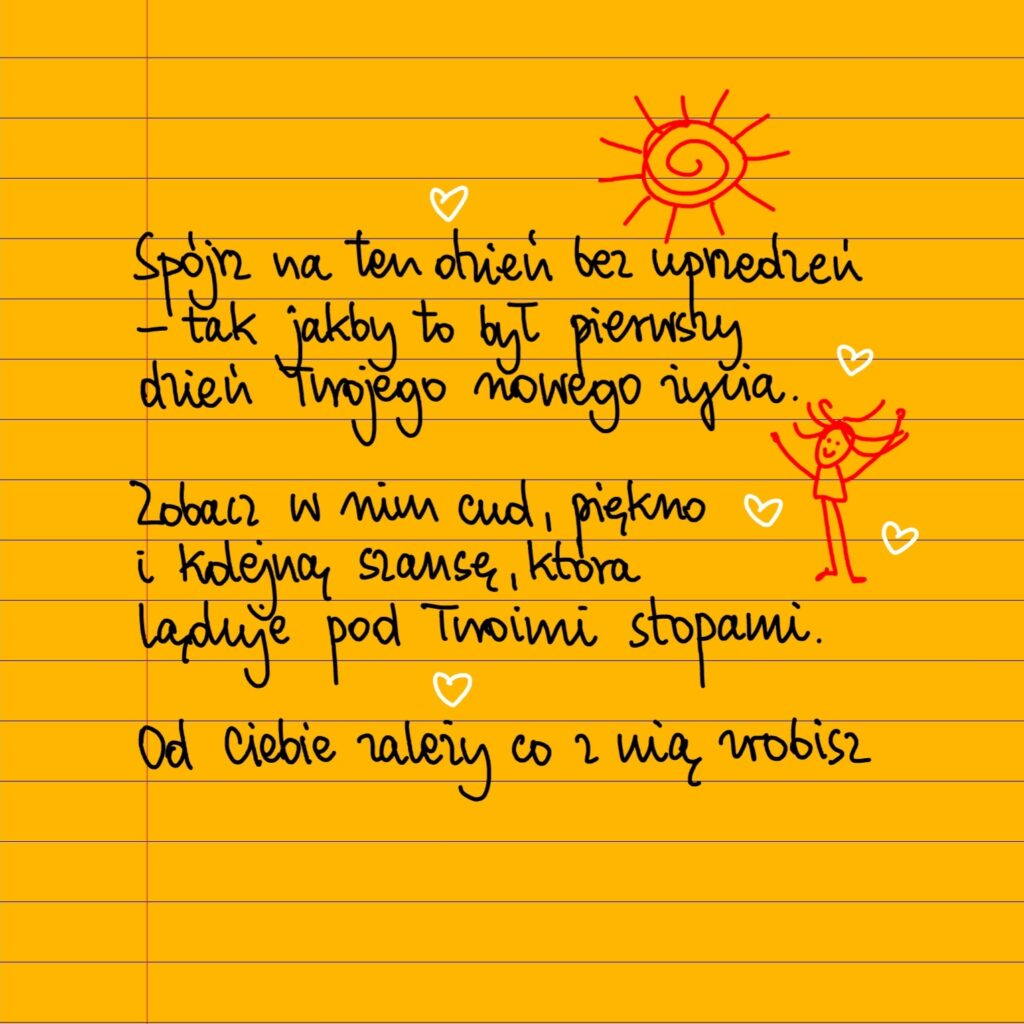 Spójrz na ten dzień bez uprzedzeń
- tak jakby to był pierwszy
dzień Twojego nowego życia.
Zobacz w nim cud, piękno
i kolejną szansę, która
ląduje pod Twoimi stopami.
Od Ciebie zależy co z nią zrobisz